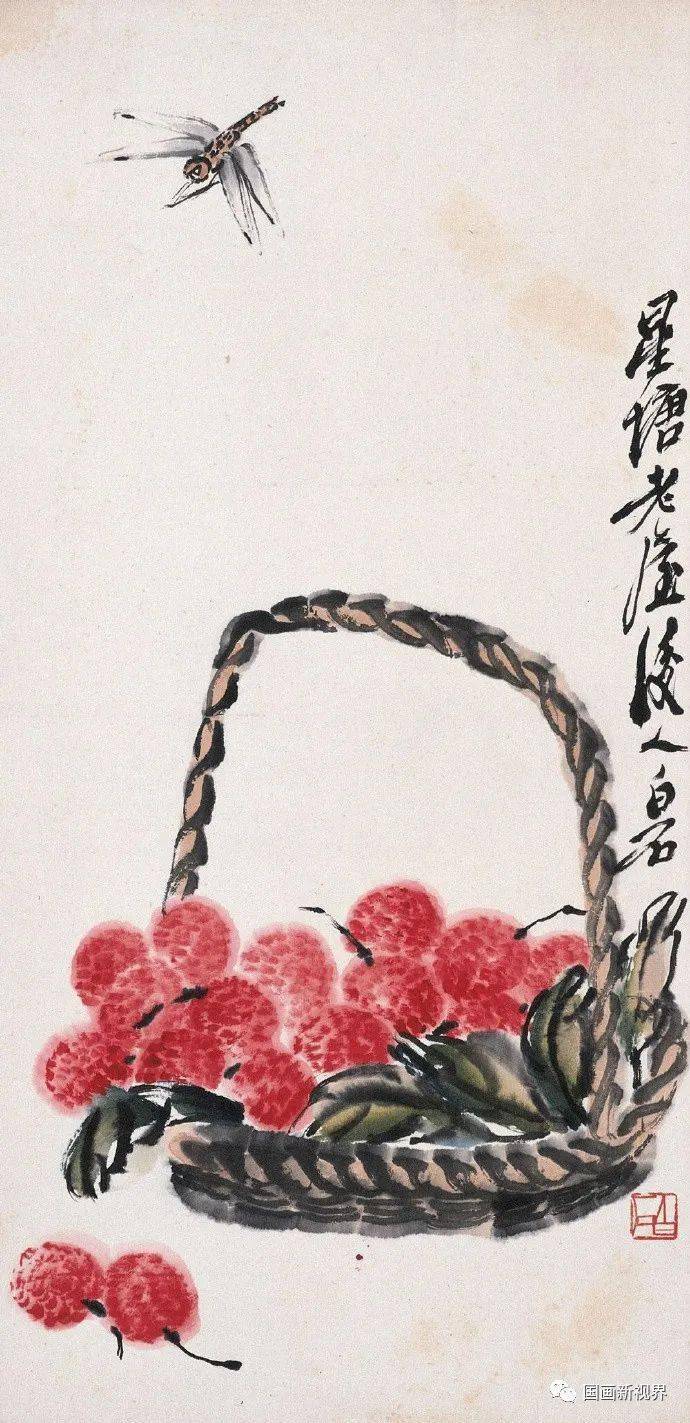 星塘老屋後人白石
国画新视界